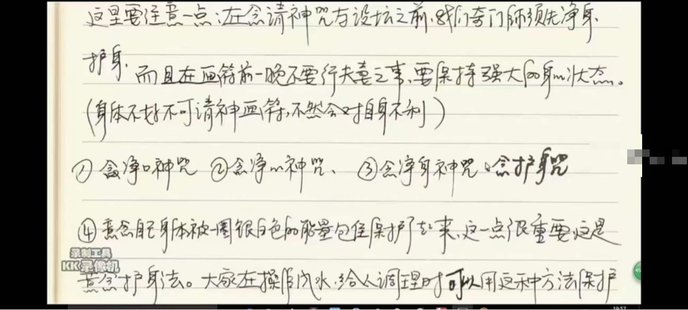 这里要注意一点:在念请神咒与设坛之前,我们奇门师须先净身
护身,而且在画符前一晚不要行夫妻之事,要保持强大的身心状态。
(身体不好不可请神画符,不然会对自身不利)
①念净口神咒 ②念净心神咒、③念净身神咒、念护身咒
④意念自己身体被一圈银白色的能量包住保护起来,这一点很重要,这是
意念护身法。大家在操作风水,给人调理时可以用这种方法保护
录制工具
KK录像机
10:57